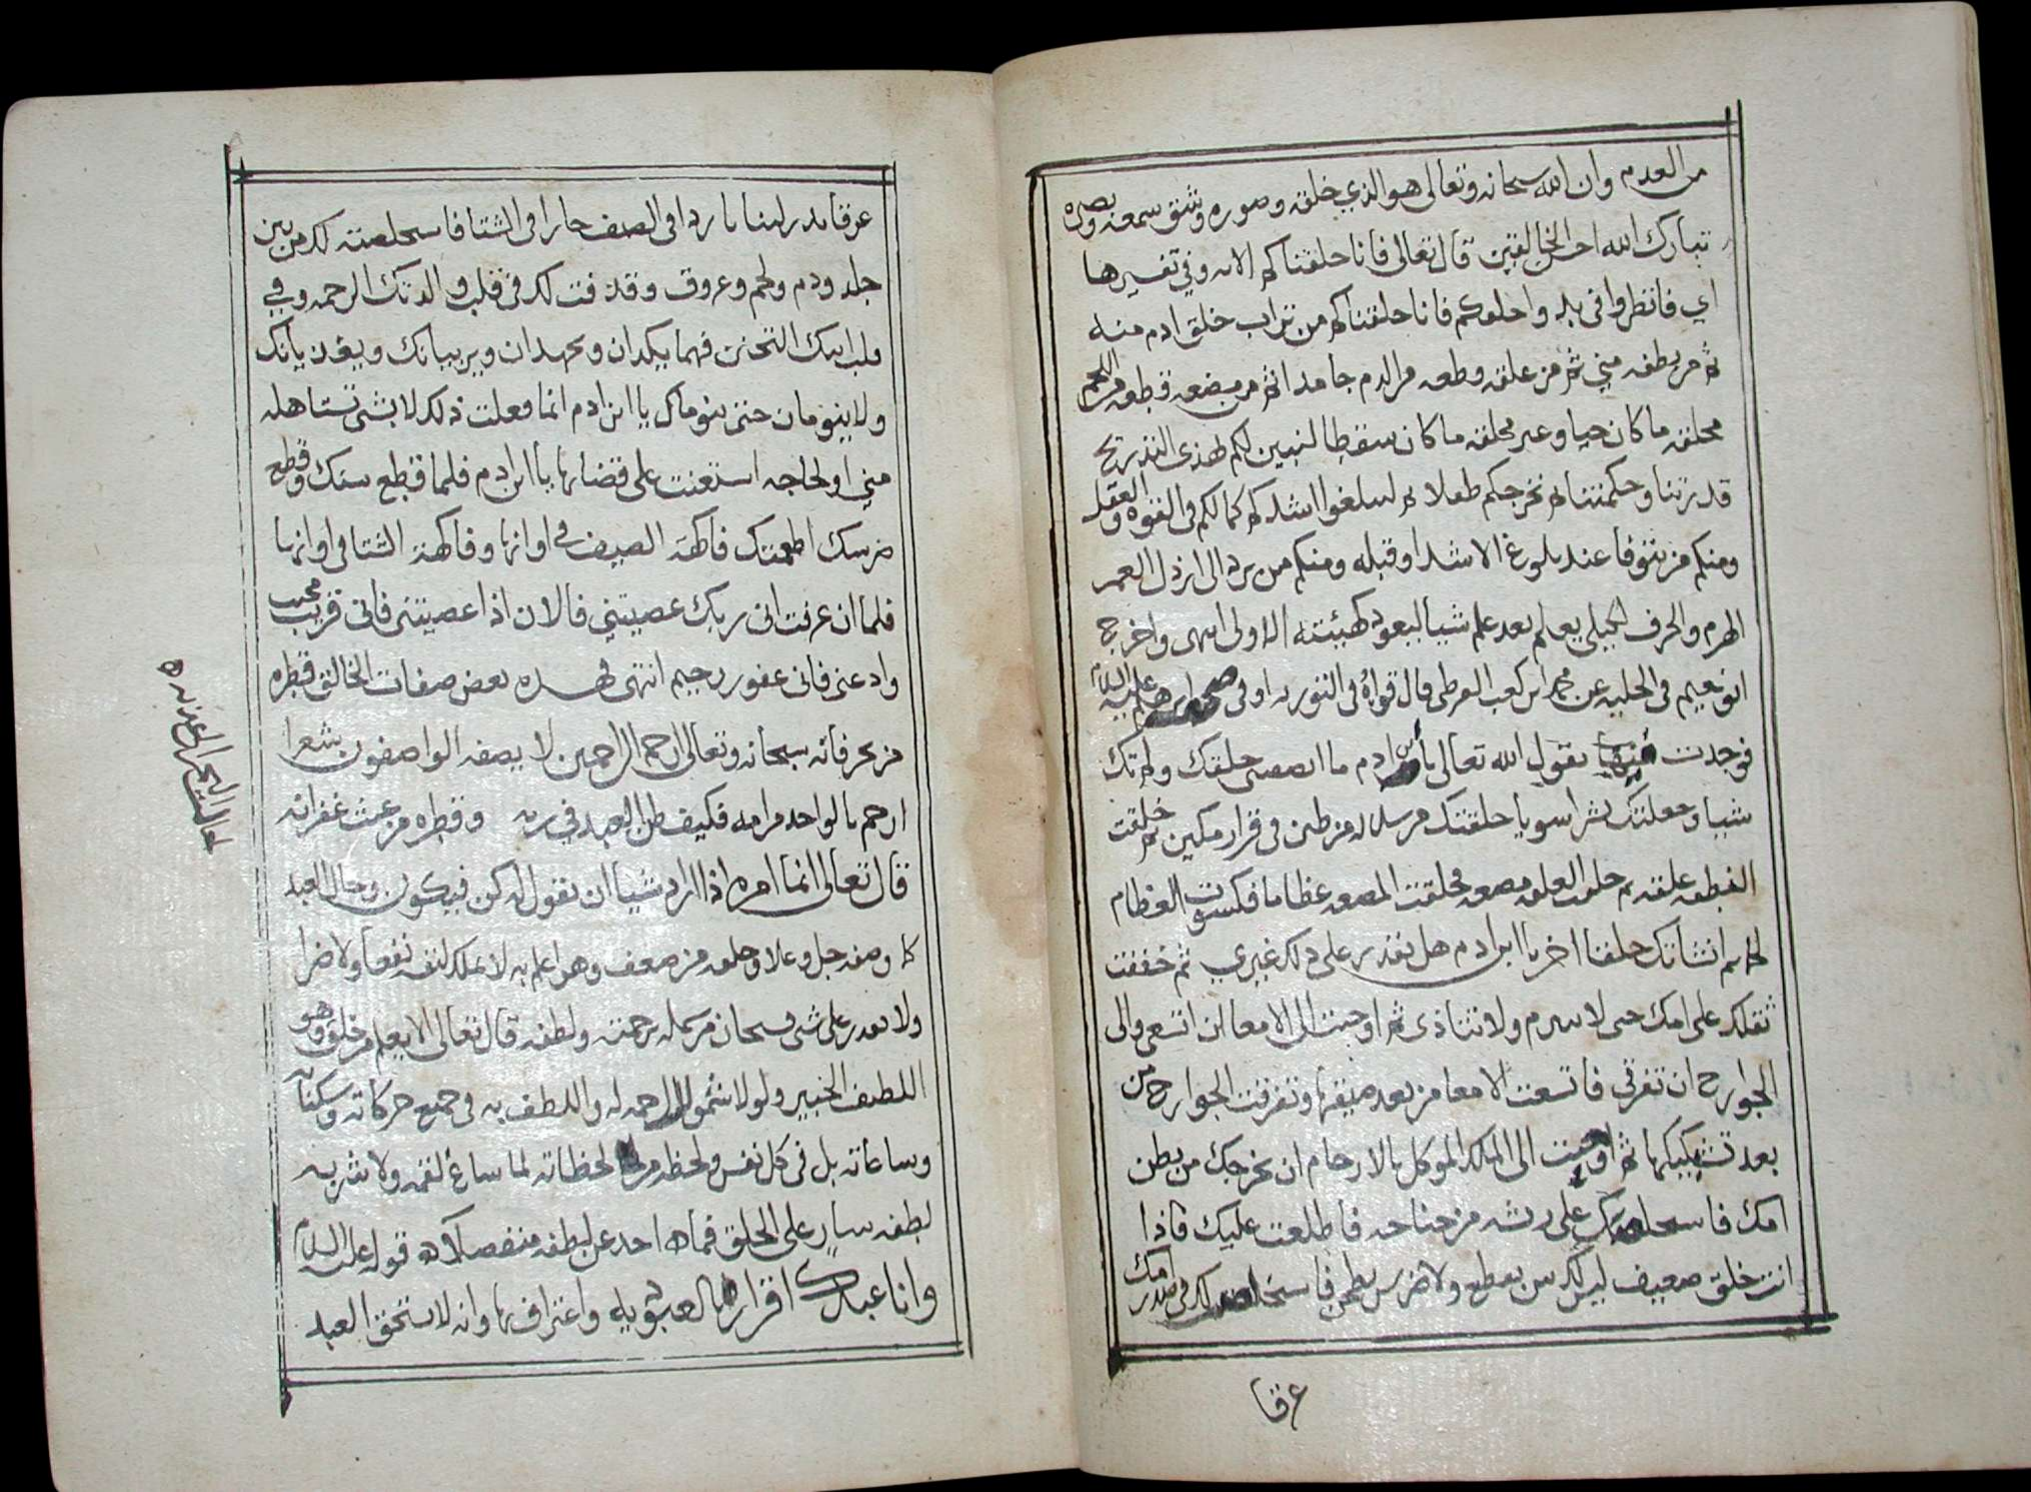 من العدم وان الله سبحانه وتعالى هو الذي خلقه وصوره وشق سمعه وبصره
تبارك الله احسن الخالقين قال تعالى فانا خلقناكم الايه وفي تفسيرها
اي فانظروا في بدو احلوكم فانا خلقناكم من تراب خلق ادم منه
ثم من نطفه مني ثم من علقه وطعه من الدم جامدا ثم من مضغه قطعه من اللحم
مخلقه ما كان حيا وغير مخلقه ما كان سقطا لنبين لكم بهذى التدريج
قدرتنا وحكمتنا ثم نخرجكم طفلا ثم لتبلغوا اشدكم كمالكم في القوه والعقل
ومنكم من يتوفا عند بلوغ الاشد او قبله ومنكم من يرد الى ارذل العمر
الهرم والخرف لكيلي يعلم بعد علم شيا ليعود كهيئته الاولى انتهى واخرج
ابو نعيم في الحليه عن محمد ابن كعب القرظي قال قراة في التوريه او في صحف ابرهيم عليه السلام
فوجدت فيها يقول الله تعالى يا ابن ادم ما انصفتني خلقتك ولم تك
شيا وجعلتك بشرا سويا خلقتك من سلاله من طين في قرار مكين ثم خلقت
النطفه علقه ثم خلقت العلقه مضغه فخلقت المضغه عظاما فكسوت العظام
لحما ثم انشاتك خلقا اخر يا ابن ادم هل يقدر على ذلك غيري ثم خففت
ثقلك على امك حتى لا تتبرم ولا تتاذى ثم اوحيت الى الامعا ان اتسعي والى
الجوارح ان تفرقي فاتسعت الامعا من بعد ضيقها وتفرقت الجوارح من
بعد تشبيكها ثم اوحيت الى الملك الموكل بالارحام ان يخرجك من بطن
امك فاستخلصتك على ريشه من جناحه فاطلعت عليك فاذا
انت خلق ضعيف ليس لك سن يقطع ولا ضرس يطحن فاستخلصت لك في صدر امك
عرقا
عرقا يدر لبنا باردا في الصيف حارا في الشتا فاستخلصته لك من بين
جلد ودم ولحم وعروق وقذفت لك في قلب والدتك الرحمه وفي
قلب ابيك التحنن فهما يكدان ويجهدان ويربيانك ويغذيانك
ولا ينومان حتى ينوماك يا ابن ادم انما فعلت ذلك لا بشى تستاهله
مني او لحاجه استعنت على قضائها يا ابن ادم فلما قطع سنك وقطع
ضرسك اطعمتك فاكهة الصيف في اوانها وفاكهة الشتا في اوانها
فلما ان عرفت اني ربك عصيتني فالان اذا عصيتني فاني قريب مجيب
وادعني فاني غفور رحيم انتهى فهذه بعض صفات الخالق قطره
من بحر فانه سبحانه وتعالى ارحم الراحمين لا يصفه الواصفون شعرا
ارحم بالواحد من امه فكيف ظن العبد في ربه وقطره من غيث غفرانه
قال تعالى انما امره اذا اراد شيا ان يقول له كن فيكون وحال العبد
كما وصفه جل وعلا وخلقه من ضعف وهو اعلم به لا يملك لنفسه نفعا ولا ضرا
ولا يقدر على شى فسبحان من كمله برحمته ولطفه قال تعالى الا يعلم من خلق وهو
اللطيف الخبير ولولا شمول الرحمه له واللطف به في جميع حركاته وسكناته
وساعاته بل في كل نفس ولحظه من لحظاته لما ساغ لقمه ولا شربه
لطفه سار على الخلق فما احد عن لطفه منفصلا قوله عليه السلام
وانا عبدك اقرار بالعبوديه واعتراف بها وانه لا يستحق العبد